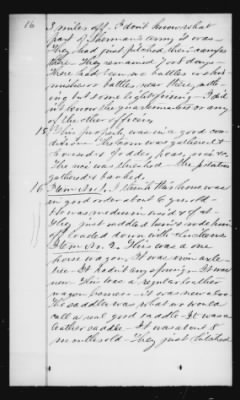 16 3 miles off. I don't know what
part of Sherman's army it was.
They had just pitched their camps
there. They remained 7 or 8 days.
There had been no battles or skir-
mishes or battles near there, noth-
ing but some I did
not know the quartermaster or any
of the other officers.
15 This property was in a good con-
dition. The corn was gathered &
housed & fodder, peas, &c.
The rice was - the potatoes
gathered & banked.
16 Item No. 1. I think this horse was
in good order about 6 yrs old.
He was medium sized & fat.
They just saddled him & rode him
off loaded down with chickens.
Item No. 2. This was a one
horse wagon. It was iron axle
tree. It hadn't any springs. It was
new. This was a regular leather
wagon harness - it was new also.
The saddle was what we would
call a real good saddle. It was a
leather saddle. It was about 8
months old. They just hitched